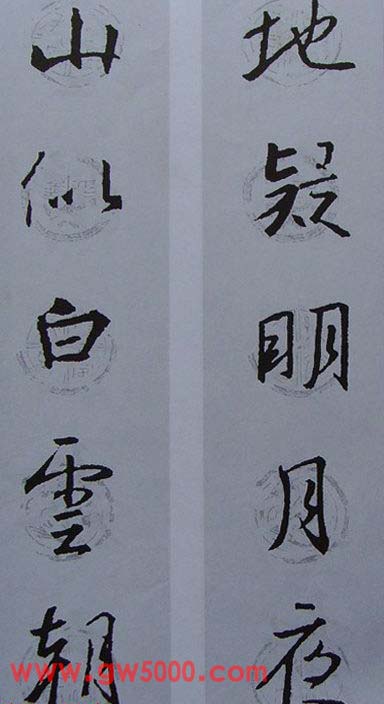 地疑明月夜
山似白雲朝
www.gw5000.com